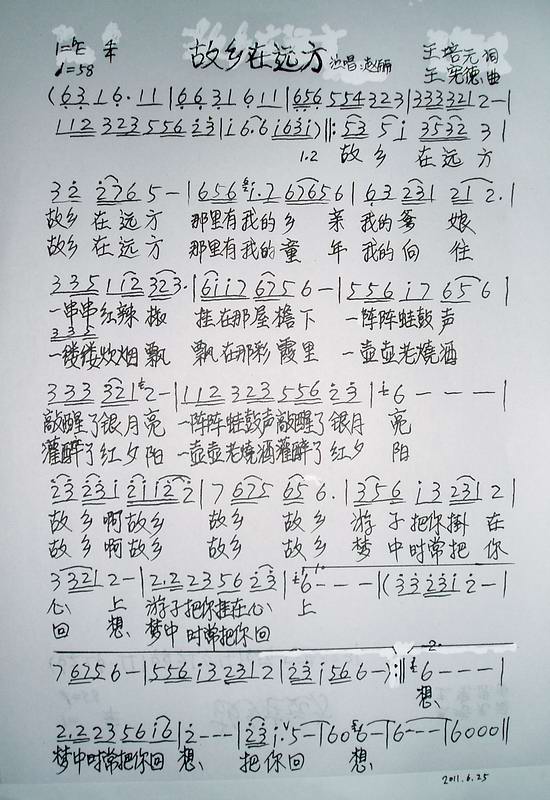 1=♭E 4/4
♩=58
故乡在远方 演唱:赵俪
王培元词
王宪德曲
(6316·11|6631611|656554323|3333212-|
11232355623|i6·6i63i)‖:535i35323|
1.2 故乡 在远方
322765-|656i·767656|63231212·|
故乡在远方 那里有我的乡 亲 我的爹 娘
故乡在远方 那里有我的童 年 我的向 往
33511232 3·|6ii76756-|556i7656|
一串串红辣椒 挂在那屋檐下 一阵阵蛙鼓声
335
一缕缕炊烟飘 飘在那彩霞里 一壶壶老烧酒
3333212-|11232355623|6---|
敲醒了银月亮 一阵阵蛙鼓声敲醒了银月 亮
灌醉了红夕阳 一壶壶老烧酒灌醉了红夕 阳
232312112 2|7675656.|356i32312|
故乡啊故乡 故乡 故乡 游子把你掛在
故乡啊故乡 故乡 故乡 梦中时常把你
33212-|2.2235623|6---|(33231 2-|
心 上 游子把你挂在心 上
回 想、 梦中时常把你回
767566-|556i32312|23i566-):‖6---|
-2-
想、
2.22356i6|2---|23i·5-|606-|6---|6000‖
梦中时常把你回 想、 把你回 想、
2011.6.25